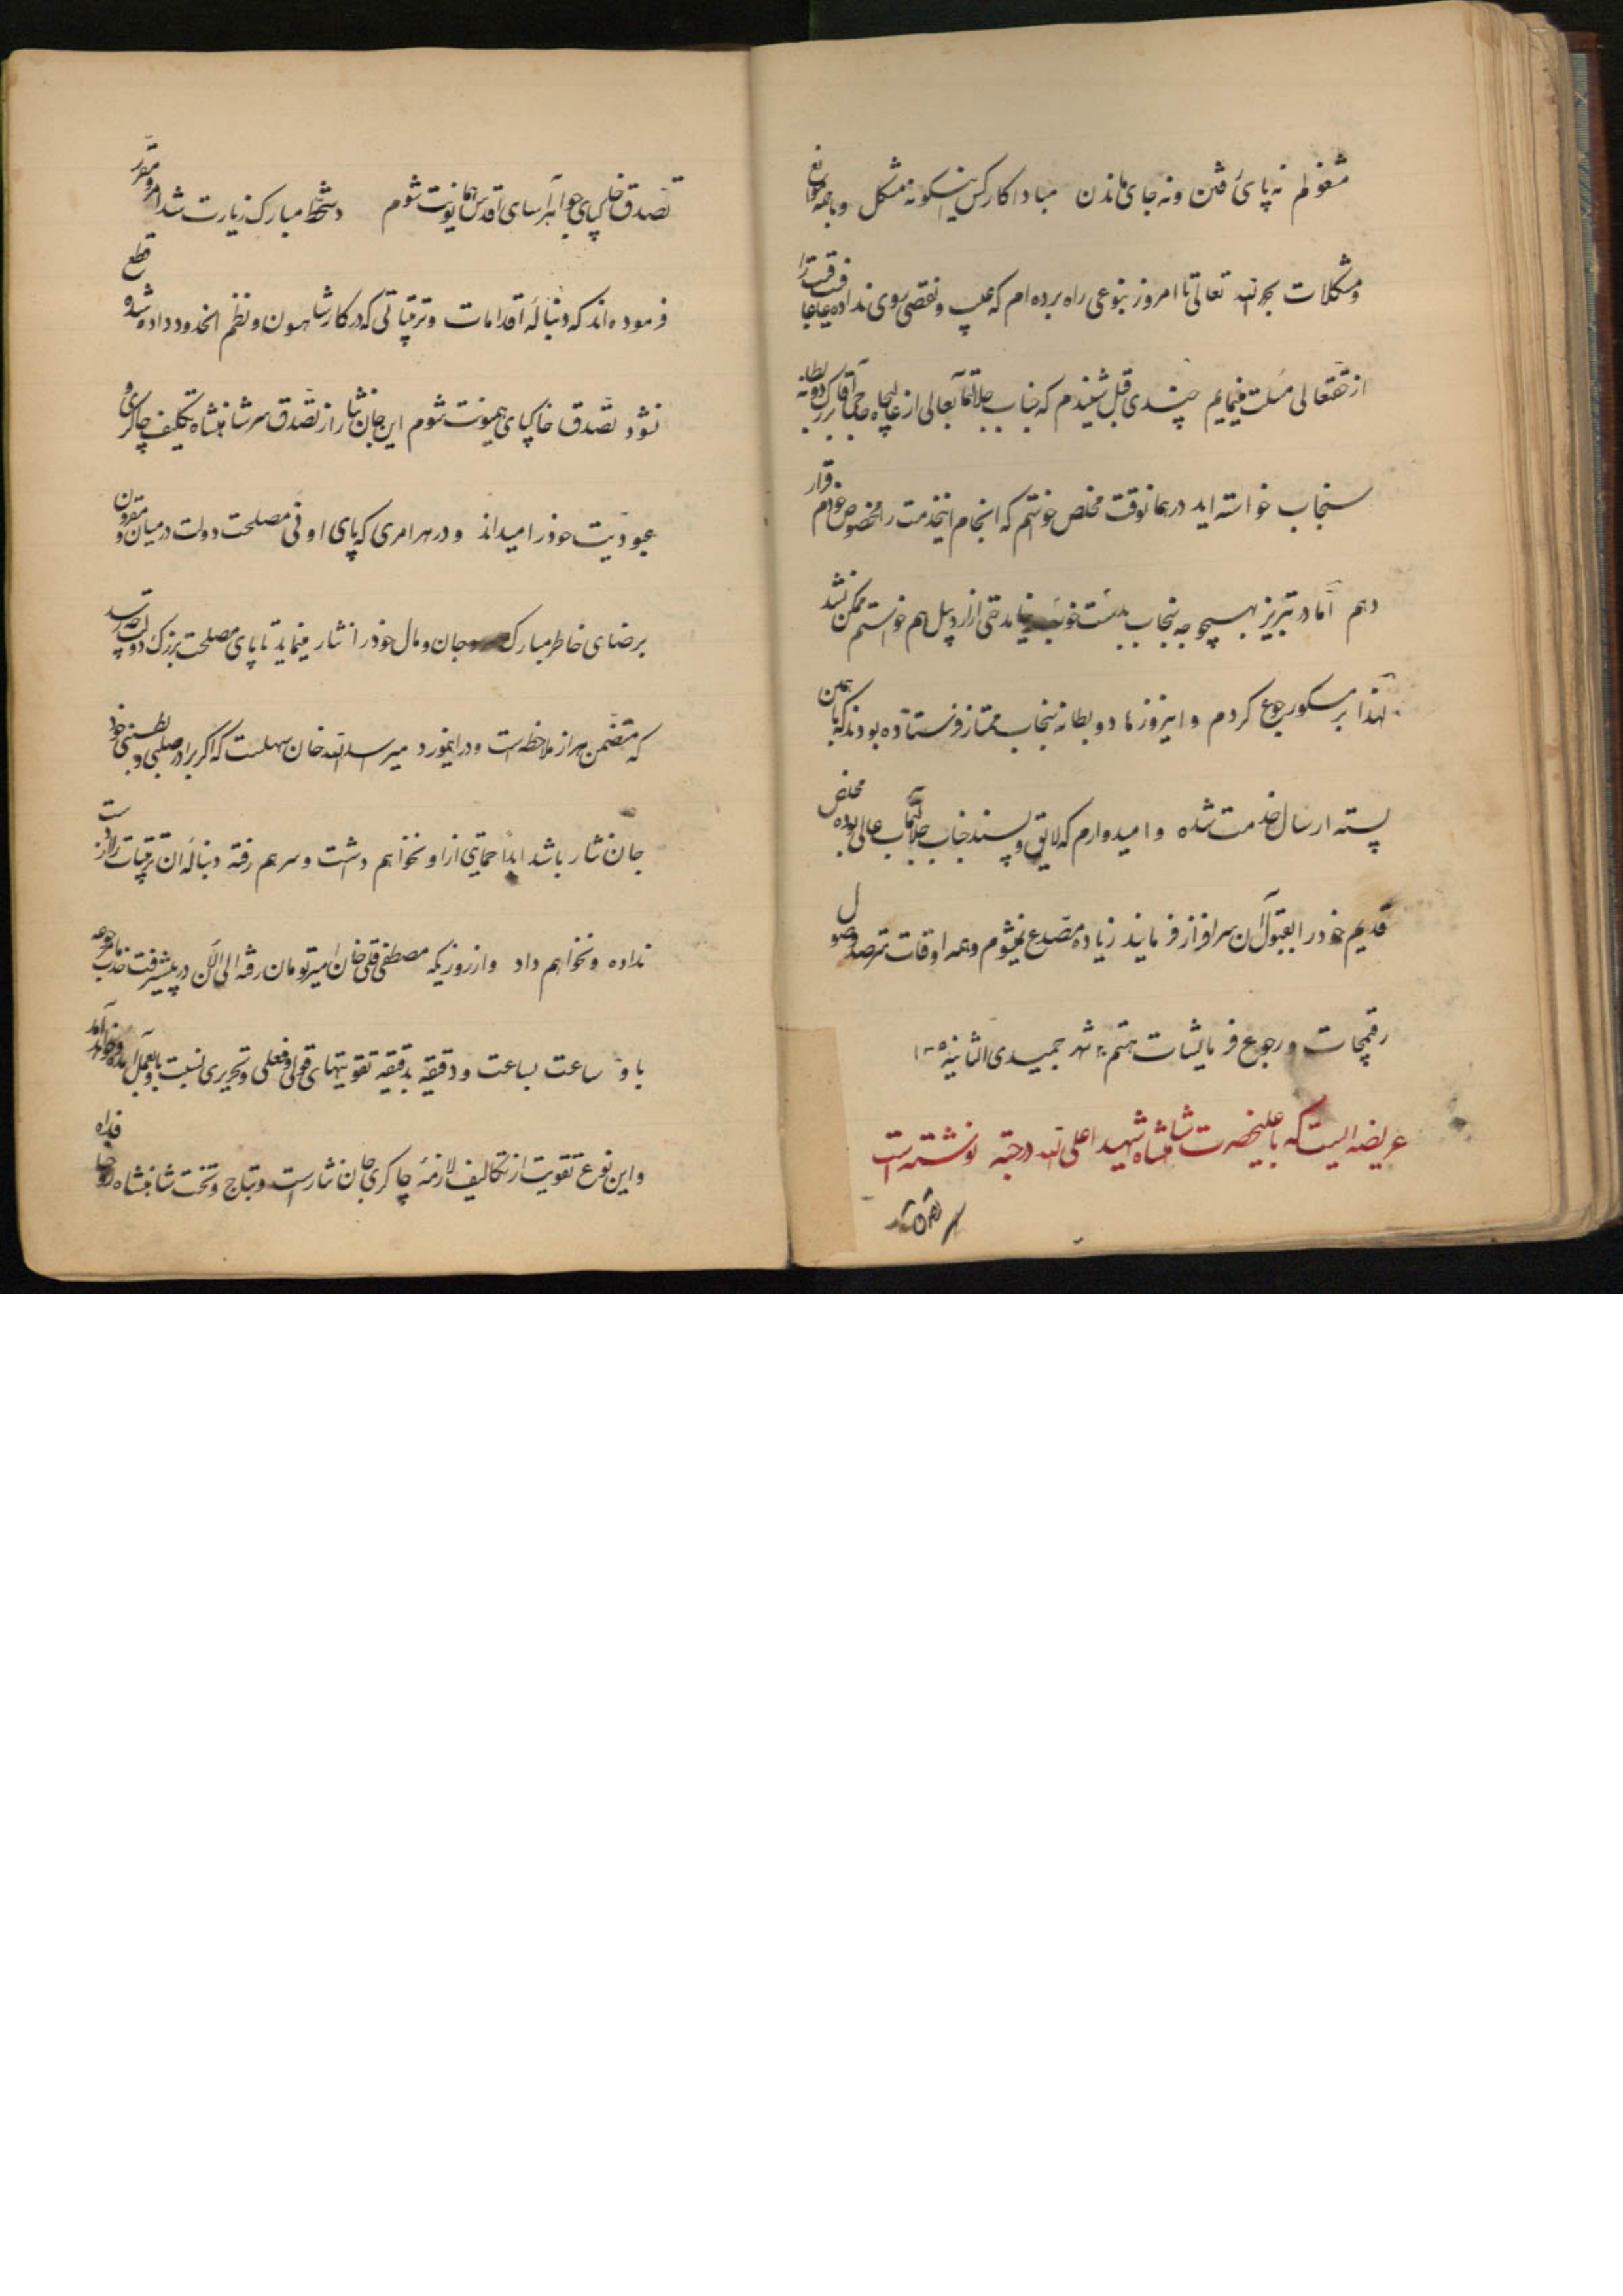 مشغولم نه پای رفتن و نه جای ماندن مبادا کار کس اینگونه مشکل و با همه موانع
و مشکلات بحمد الله تعالی تا امروز بنوعی راه برده‌ام که عیب و نقصی روی نداده
از حقتعالی مسئلت مینمایم چندی قبل شنیدم که جناب جلالتمآب عالی از عالیجاه حاجی آقا بزرگ دو بطانه
سنجاب خواسته‌اید در همانوقت مخلص خواستم که انجام اینخدمت را مخصوص خودم قرار
دهم اما در تبریز بهیچوجه سنجاب بدست نیامد حتی از اردبیل هم خواستم ممکن نشد
لهذا بمسکو رجوع کردم و اینروزها دو بطانه سنجاب ممتاز فرستاده بودند که با همین
پسته ارسال خدمت شده و امیدوارم که لایق و پسند جناب جلالتمآب عالی بوده مخلص
قدیم خود را بقبول آن سرافراز فرمایند زیاده مصدع نمیشوم و همه اوقات مترصد وصول
رقمیجات و رجوع فرمایشات هستم شهر جمیدی الثانیه
عریضه ایست که باعلیحضرت شاهنشاه شهید اعلی الله درجته نوشته است
تصدق خاکپای جواهر آسای اقدس همایونت شوم دستخط مبارک زیارت شد امر و مقرر
فرموده‌اند که دنباله اقدامات و ترتیباتی که در کار شاهسون و نظم انحدود داده شده قطع
نشود تصدق خاکپای همیونت شوم این جان نثار از تصدق سر شاهنشاه تکلیف چاکری و
عبودیت خود را میداند و در هر امری که پای اوفی مصلحت دولت در میان و مقرون
برضای خاطر مبارک جان و مال خود را نثار مینماید تا پای مصلحت بزرگ دولت چه رسد
که متضمن هزار ملاحظه است و در اینمورد میر اسدالله خان سهلست که اگر برادر صلبی و بطنی خود
جان نثار باشد ابدا حمایتی از او نخواهم داشت و سر هم رفته دنباله آن ترتیبات را از دست
نداده و نخواهم داد و از روزیکه مصطفی قلی خان امیرتومان رفته الی الآن در پیشرفت خدمات مرجوعه
باو ساعت بساعت و دقیقه بدقیقه تقویتهای قولی و فعلی و تحریری نسبت باو بعمل آمده و خواهد آمد
و این نوع تقویت از تکالیف لازمه چاکری جان نثار است و بتاج و تخت شاهنشاه روحنا فداه